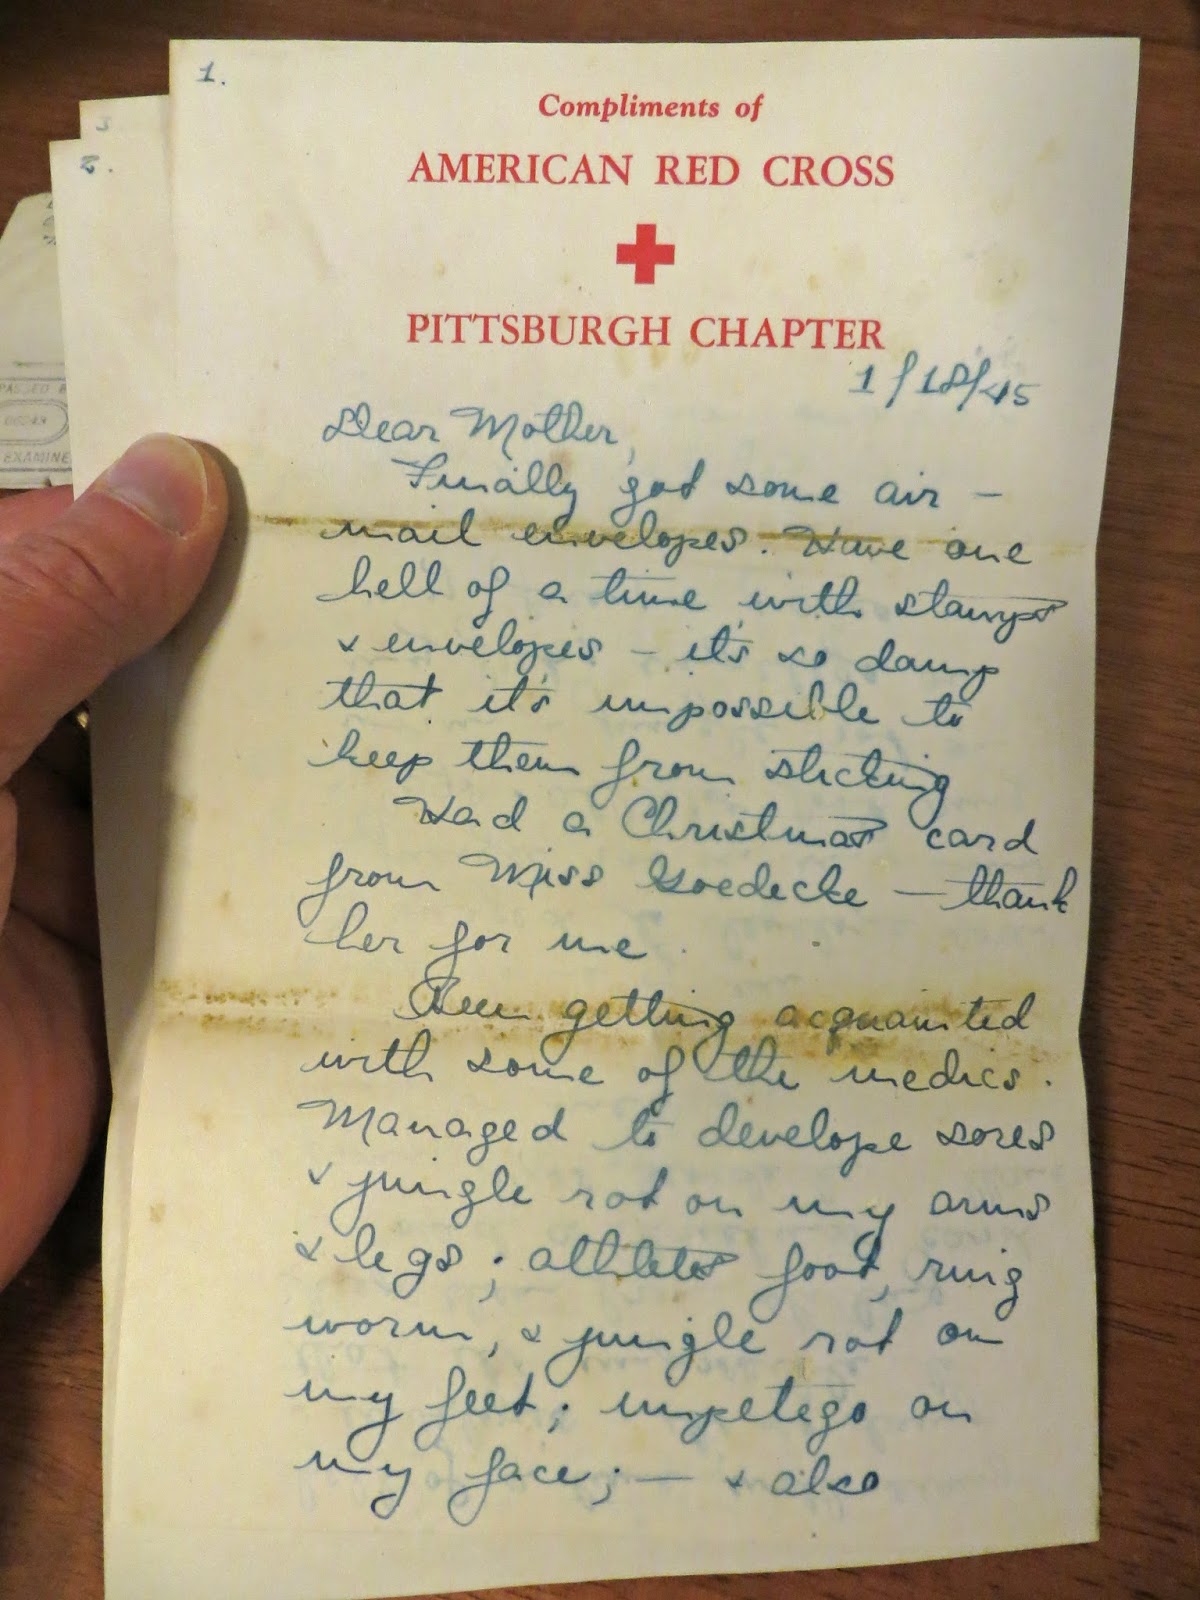 1.
Compliments of
AMERICAN RED CROSS
PITTSBURGH CHAPTER
1/18/45
Dear Mother,
Finally got some air -
mail envelopes. Have one
hell of a time with stamps
& envelopes - it's so damp
that it's impossible to
keep them from sticking
Had a Christmas card
from Miss Goedecke - thank
her for me.
Been getting acquainted
with some of the medics.
Managed to develope sores
& jungle rot on my arms
& legs; athletes foot, ring
worm, & jungle rot on
my feet; impetego on
my face; - & also
3
2.
PASSED B
EXAMINE